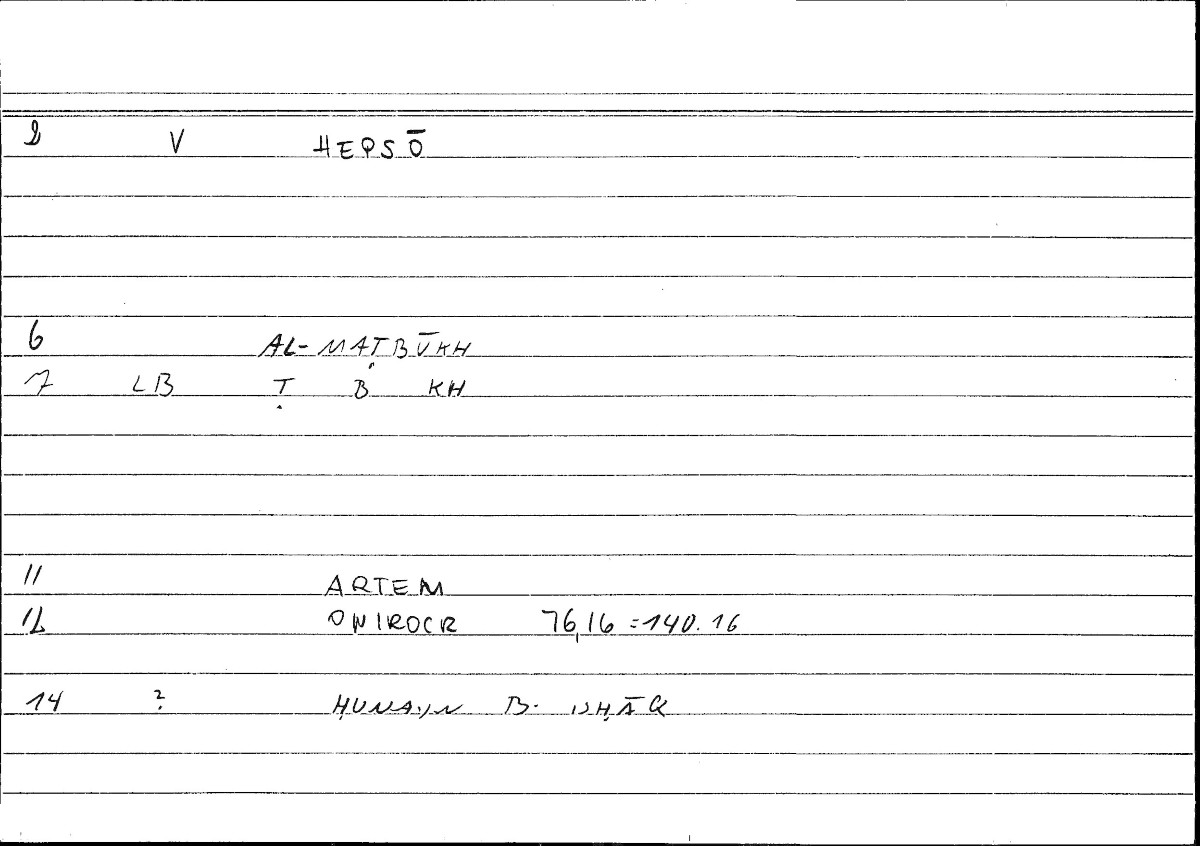 2 V HEPSŌ
6 AL-MAṬBŪKH
7 LB Ṭ B KH
11 ARTEM
12 ONIROCR 76,16 = 140.16
14 ? ḤUNAYN B. ISḤĀQ